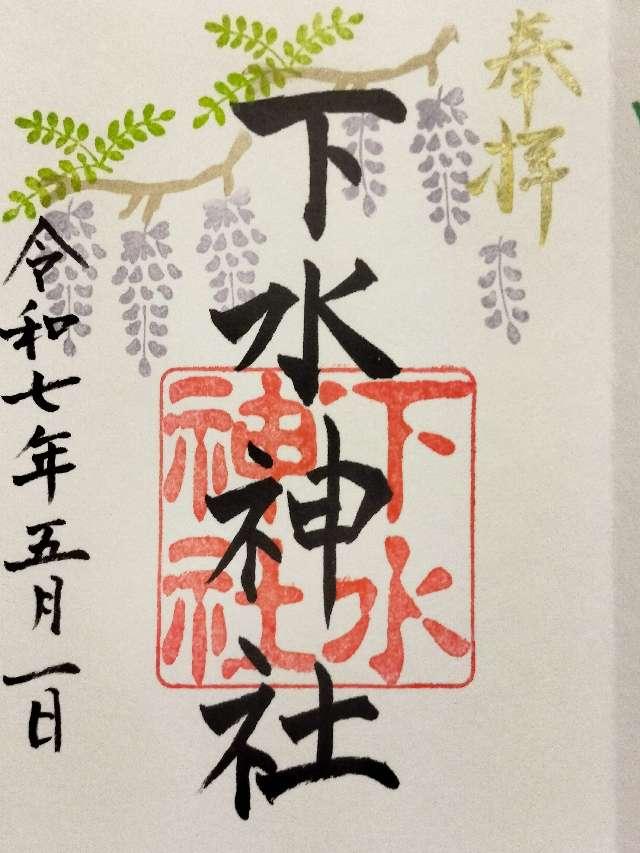 奉拝
下水神社
下水
神社
令和七年五月一日